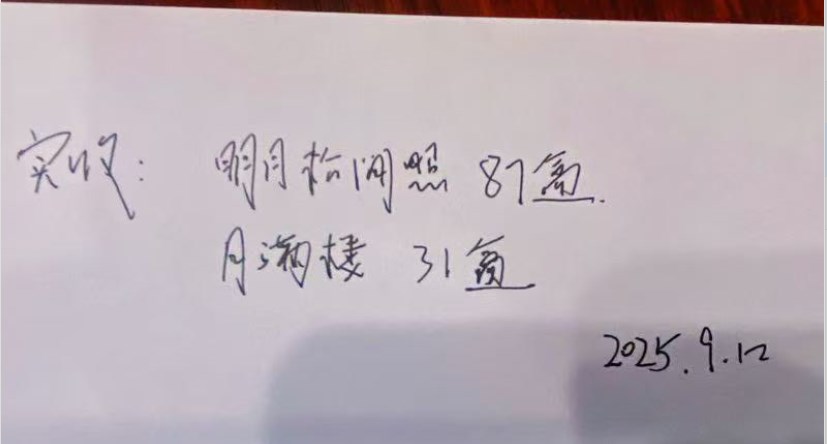 实收: 明月松间照 87盒.
月满楼 31盒
2025.9.12